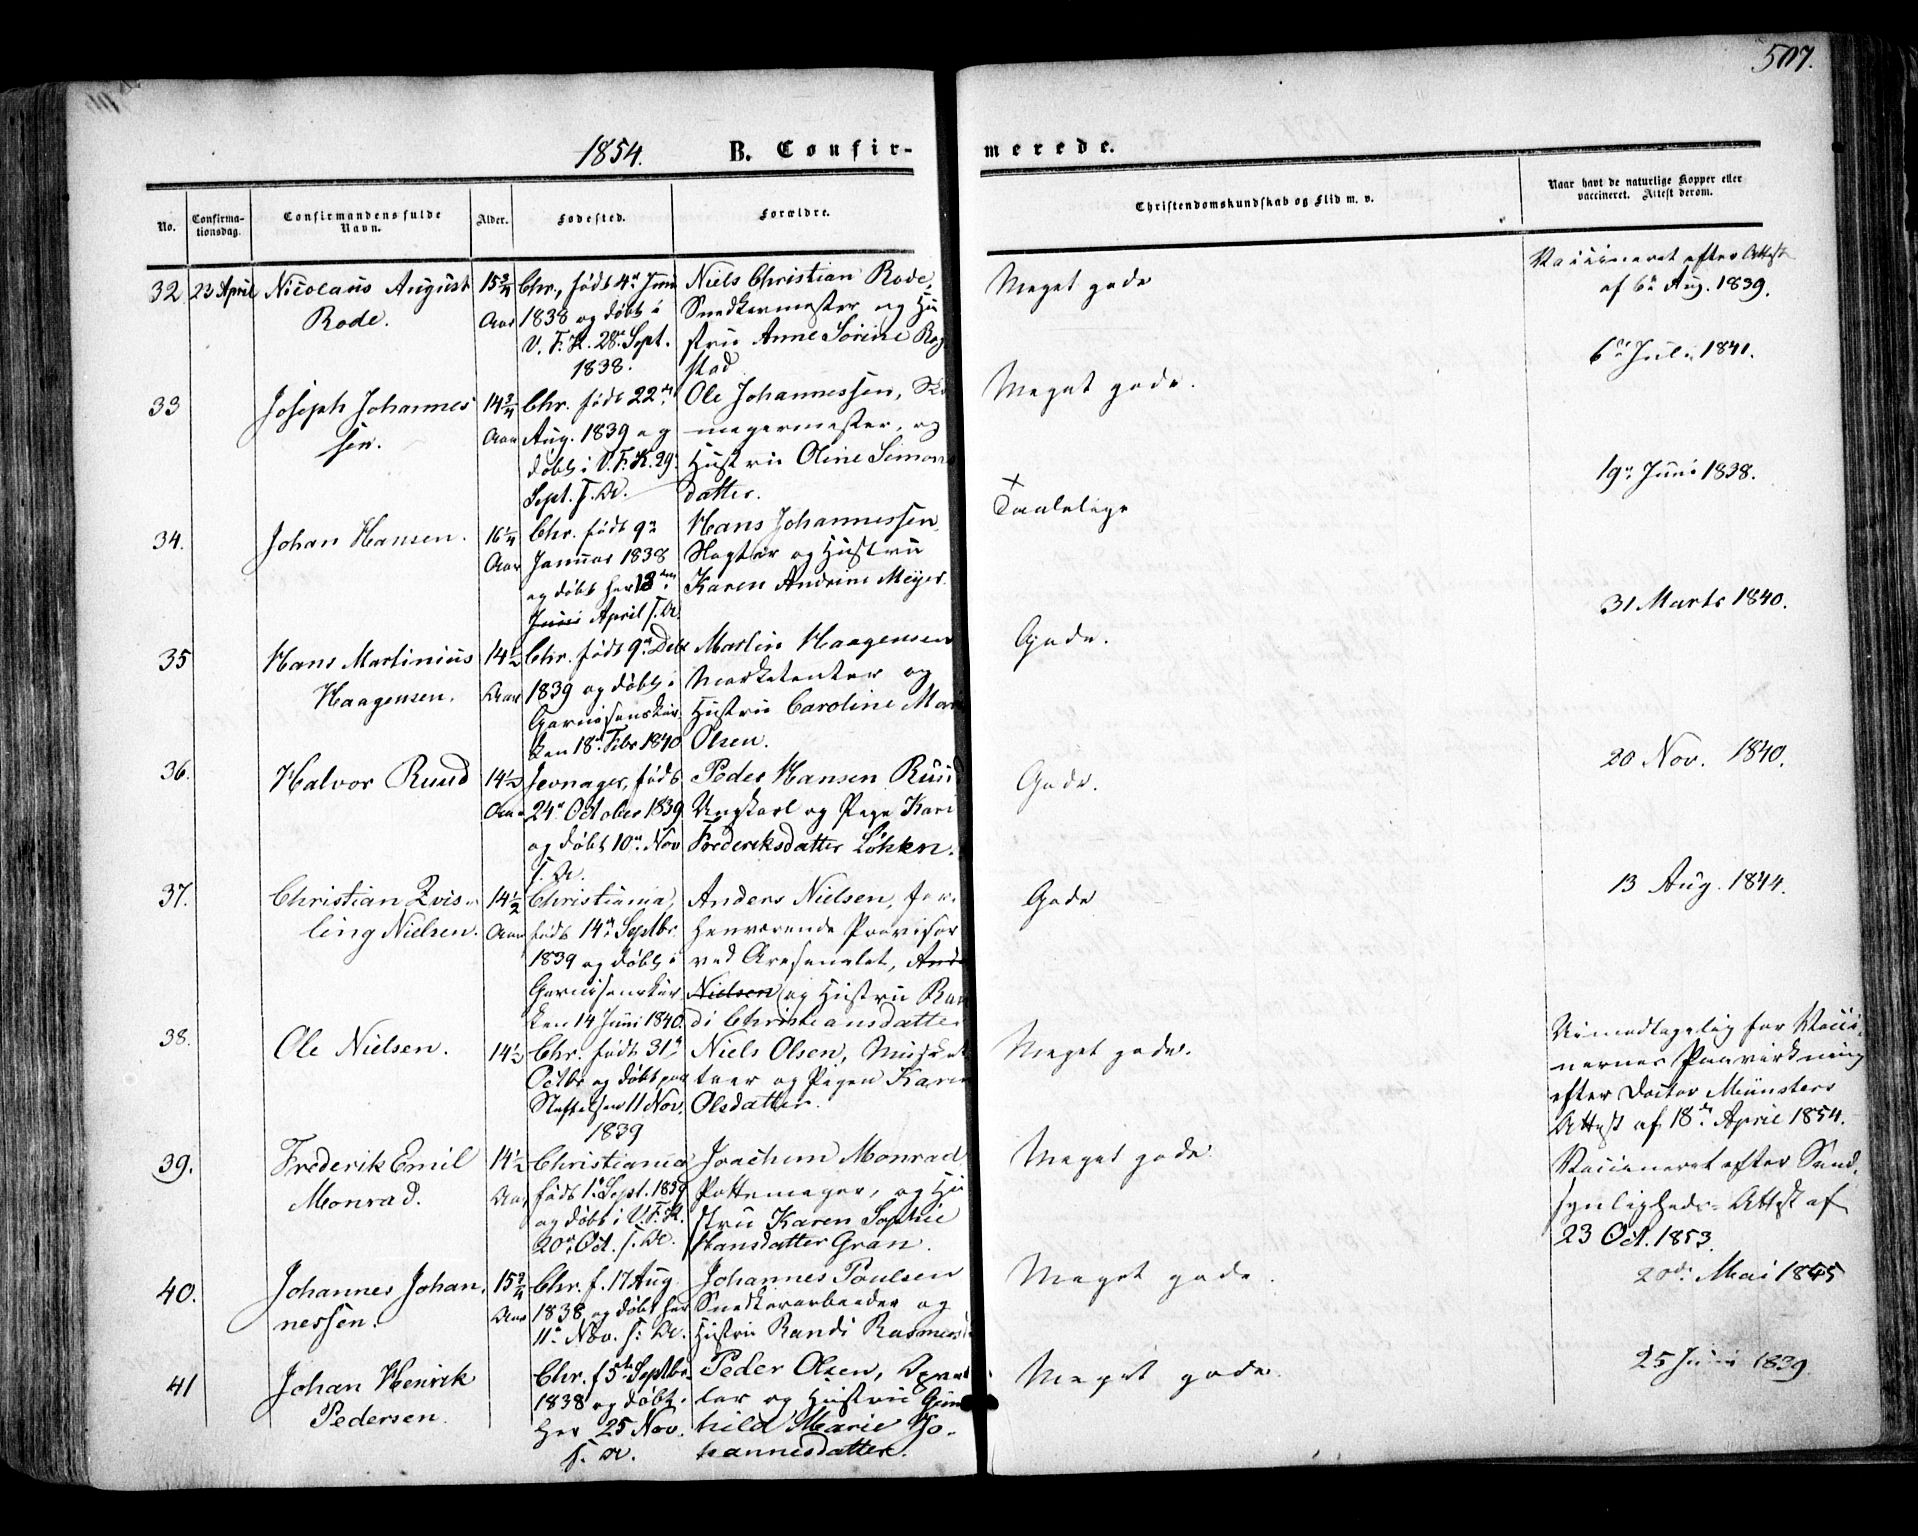 507.
1854. B. Confir- merede.
No.
Confirma-
tionsdag.
Confirmandens fulde
Navn.
Alder.
Fødested.
Forældre.
Christendomskundskab og Flid m. v.
Naar havt de naturlige Kopper eller
vaccineret. Attest derom.
32
23 April
Nicolaus August
Rode.
15 3/4
Aar
Chr., født 4de Juni
1838 og døbt i
V. F. K. 28de Sept.
1838.
Niels Christian Rode,
Snedkermester og Hu
stru Anne Sørine Rog
stad
Meget gode
Vaccineret efter Attest
af 6te Aug. 1839.
33
Joseph Johannes
sen.
14 3/4
Aar
Chr. født 22de
Aug. 1839 og
døbt i V. F. K. 29.
Sept. s. A.
Ole Johannessen,
magermester, og
Hustru Oline Simons
datter.
Meget gode.
6te Juli 1841.
34.
Johan Hansen.
16 1/4
Aar
Chr. født 9de
Januar 1838
og døbt her 13den
Juni April s. A.
Hans Johannessen,
Slagter og Hustru
Karen Andrine Meyer.
×
Taalelige
19de Juni 1838.
35
Hans Martinius
Haagensen.
14 1/2
Aar
Chr. født 9de Debr
1839 og døbt i
Garnisonskir
ken 18de Febr 1840
Martin Haagensen
Marketenter og
Hustru Caroline Mar
Olsen.
Gode.
31 Marts 1840.
36.
Halvor Ruud
14 1/2
Aar
Jevnager, født
24de October 1839
og døbt 10de Nov
s. A.
Peder Hansen Ruud
Ungkarl og Pige Kari
Frederiksdatter Løhken.
Gode.
20 Nov. 1840.
37.
Christian Qvis-
ling Nielsen.
14 1/2
Aar
Christiania,
født 14de Septbr.
1839 og døbt i
Garnisonskir
ken 14 Juni 1840.
Anders Nielsen, for-
henværende Provisor
ved Arsenalet, Ande
Nielsen og Hustru Ran
di Christiansdatter
Gode
13 Aug. 1844.
38.
Ole Nielsen.
14 1/2
Chr. født 31de
Octbr og døbt paa
Stiftelsen 11 Nov.
1839
Niels Olsen, Musket
teer og Pigen Karen
Olsdatter.
Meget gode.
Uimodtagelig for Vacci-
nernes Paavirkning
efter Doctor Münsters
Attest af 18de April 1854.
39.
Frederik Emil
Monrad.
14 1/2
Aar
Christiania
født 1de Sept. 1839
og døbt i V. F. K.
20de Oct. s. A.
Joachim Monrad
Pottemager, og Hu
stru Karen Sophie
Hansdatter Gran.
Meget gode
Vaccineret efter Sand-
synligheds-Attest af
23 Oct. 1853.
40.
Johannes Johan
nessen.
15 3/4
Aar
Chr. f. 17 Aug
1838 og døbt her
11te Nov. s. A.
Johannes Poulsen
Snedkerarbeider og
Hustru Randi Rasmusd
Meget gode.
20de Mai 1845
41
Johan Henrik
Pedersen.
Chr. f 5te Septbr.
1838 og døbt
her 25 Nov.
s. A.
Peder Olsen,
ler og Hustru Gun
hild Marie Jo-
hannesdatter.
Meget gode.
25 Juni 1839.